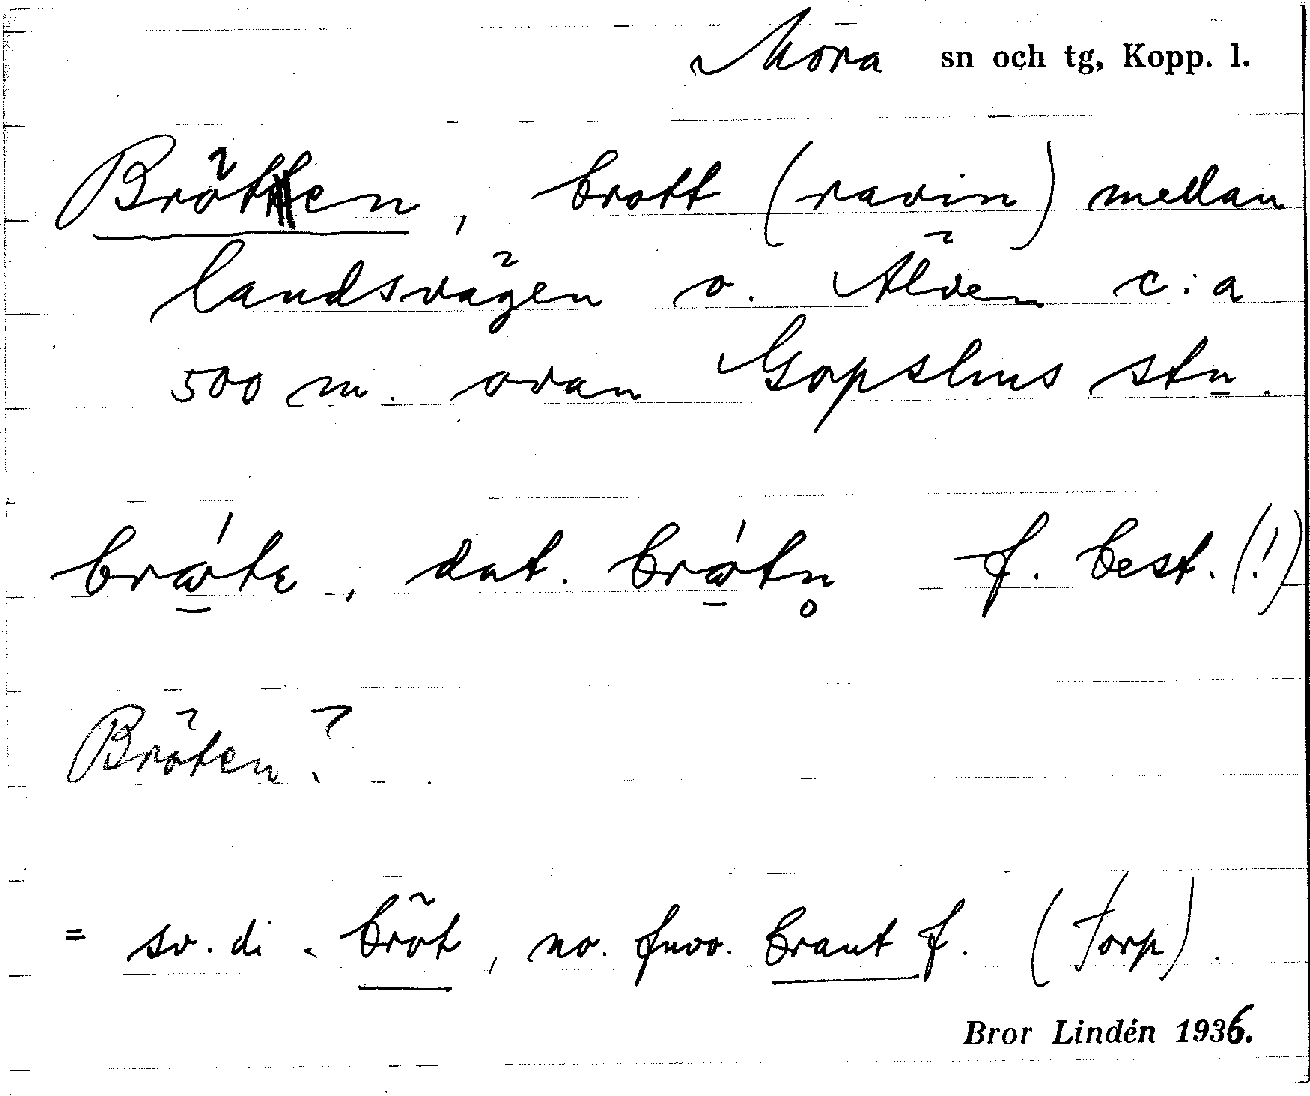 Mora sn och tg, Kopp. l.
Bröten, brott (ravin) mellan
landsvägen o. Älven c:a
500 m. ovan Gopshus stn.
brǿte, dat. brǿtn̥ f. best. (!)
Bröten?
= sv. di. bröt, no. fnvo. braut f. (Torp).
Bror Lindén 1936.